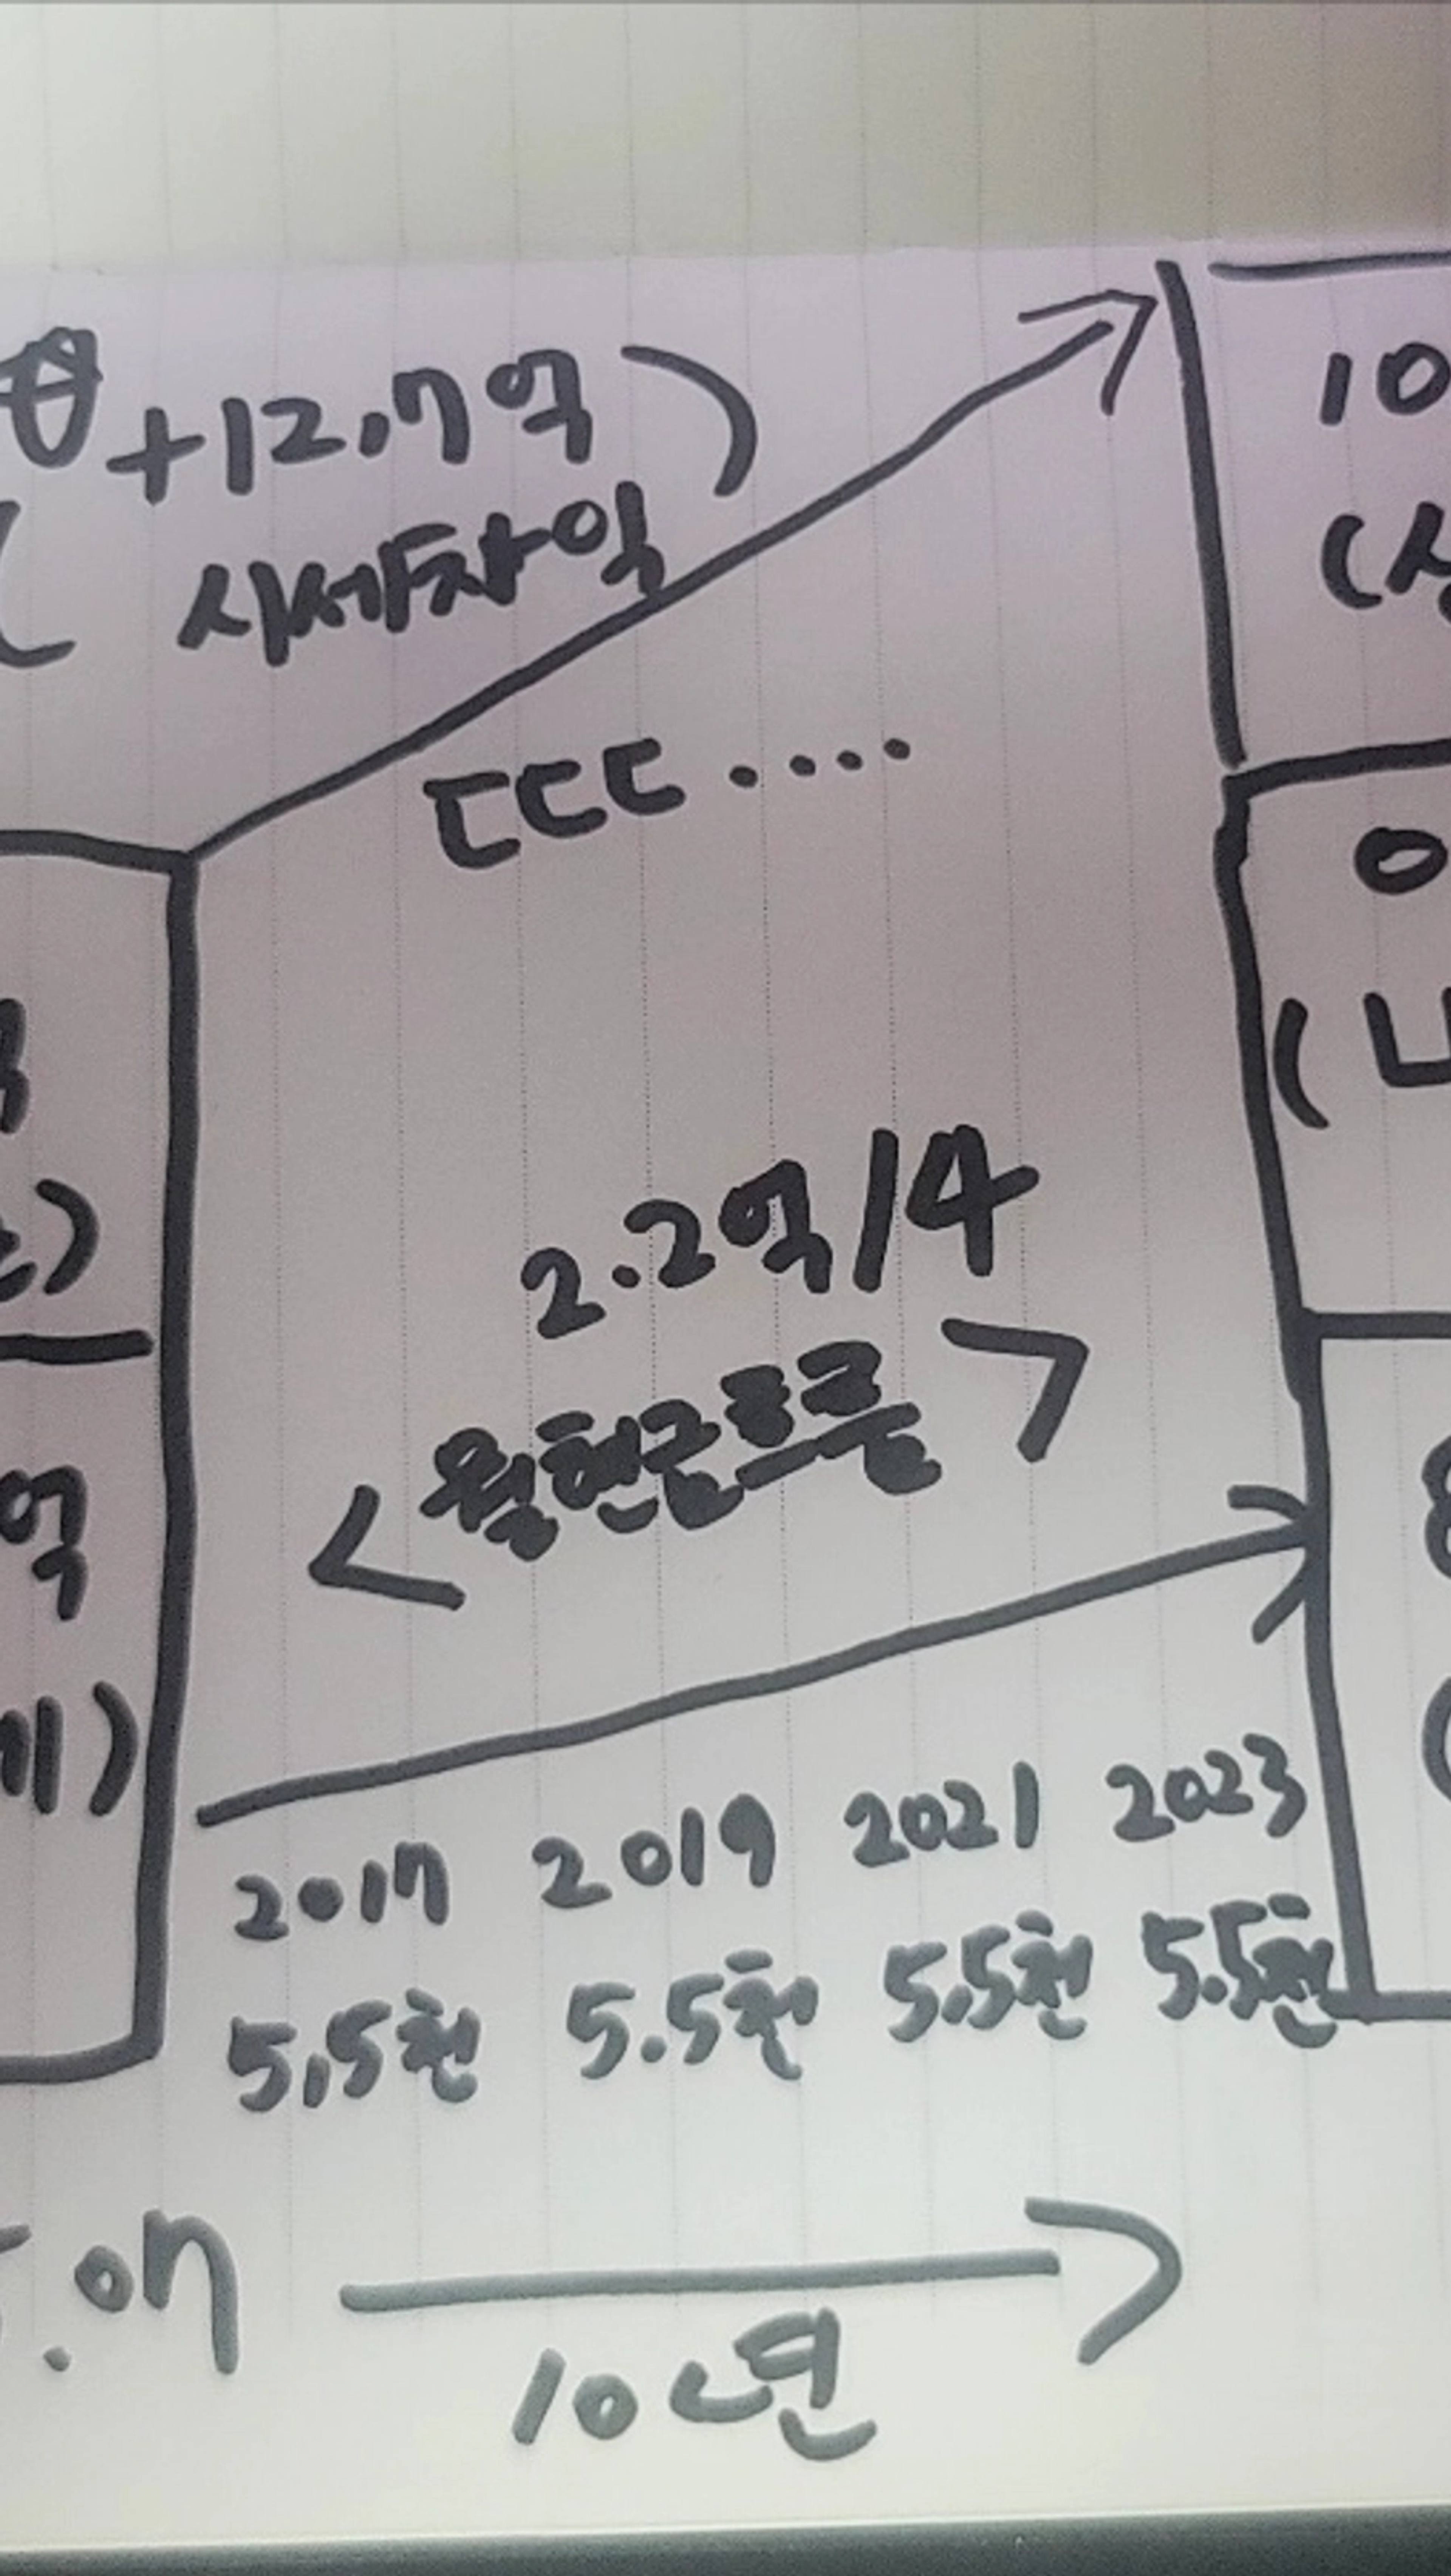 +12.7억)
시세차익
10
ㄷㄷㄷ....
0
2.2억/4
<월현금흐름>
억
2017 2019 2021 2023
5.5천 5.5천 5.5천 5.5천
10년